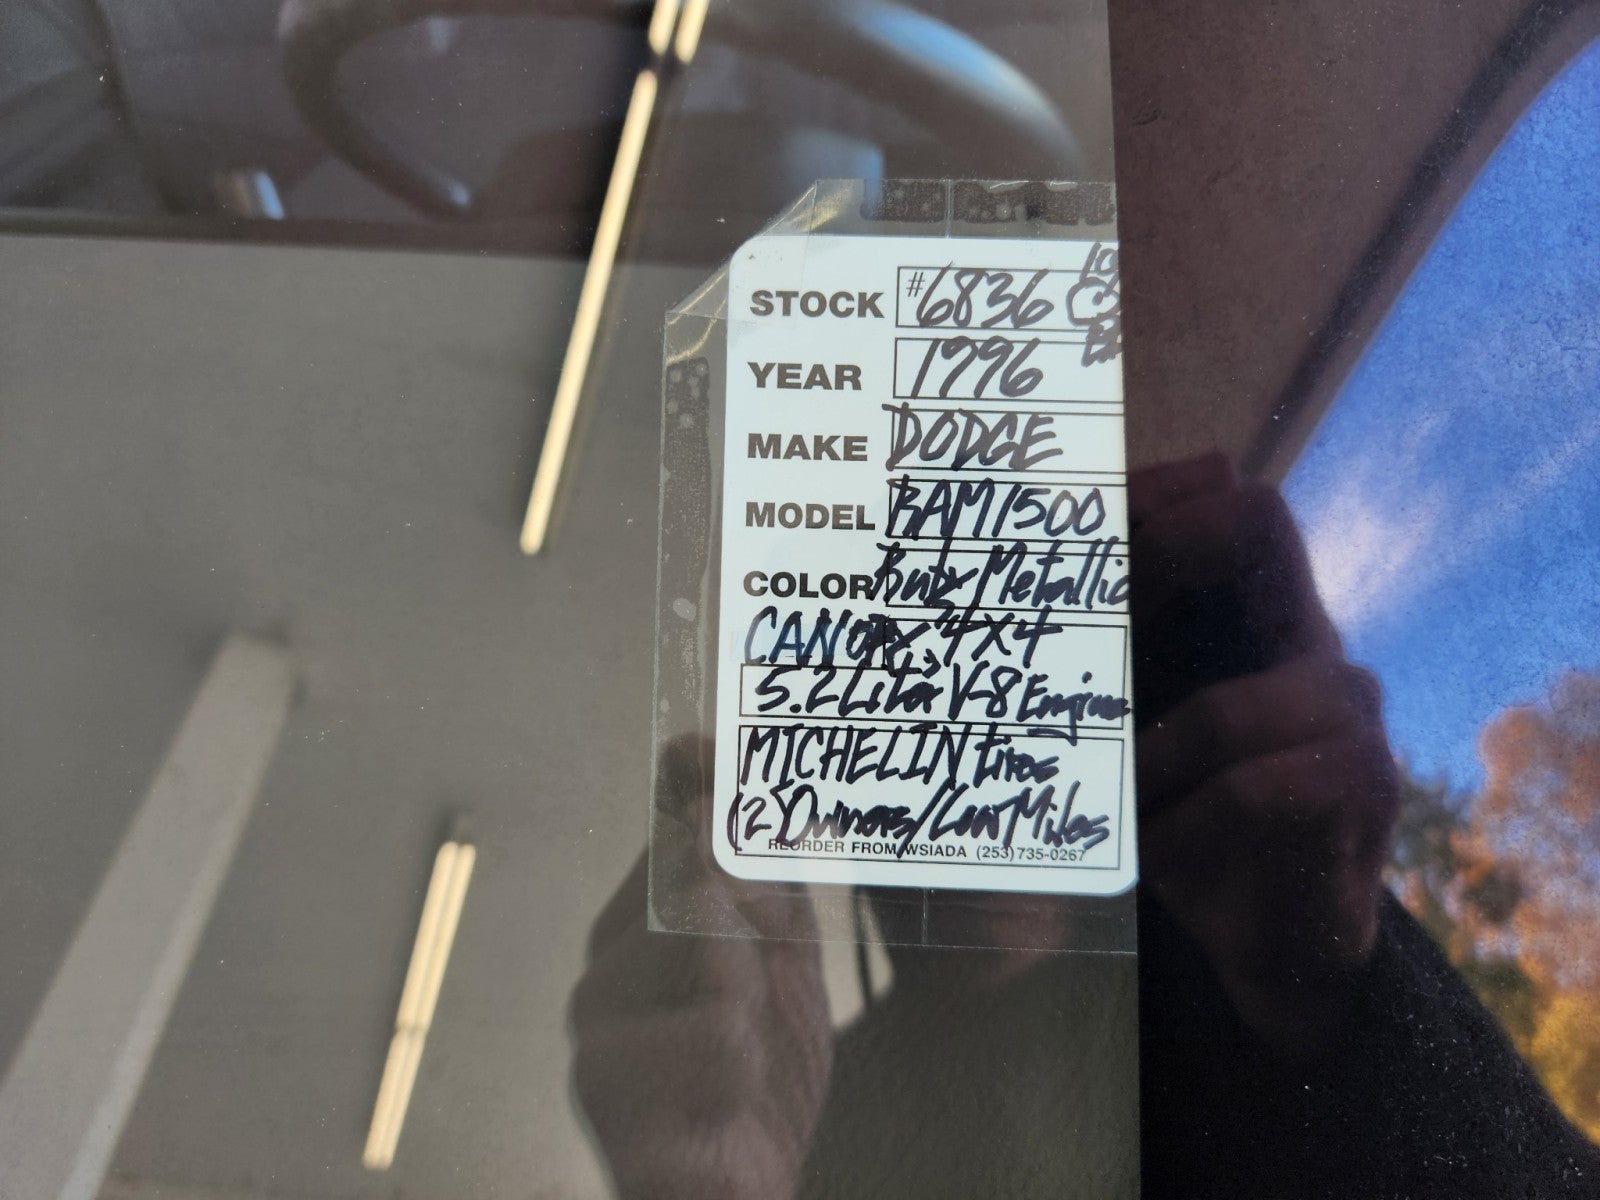 STOCK #6836
YEAR 1996
MAKE DODGE
MODEL RAM 1500
COLOR Ruby Metallic
CANOPY 4X4
5.2 Liter V-8 Engine
MICHELIN tires
(2) Owners/Low Miles
REORDER FROM WSIADA (253) 735-0267